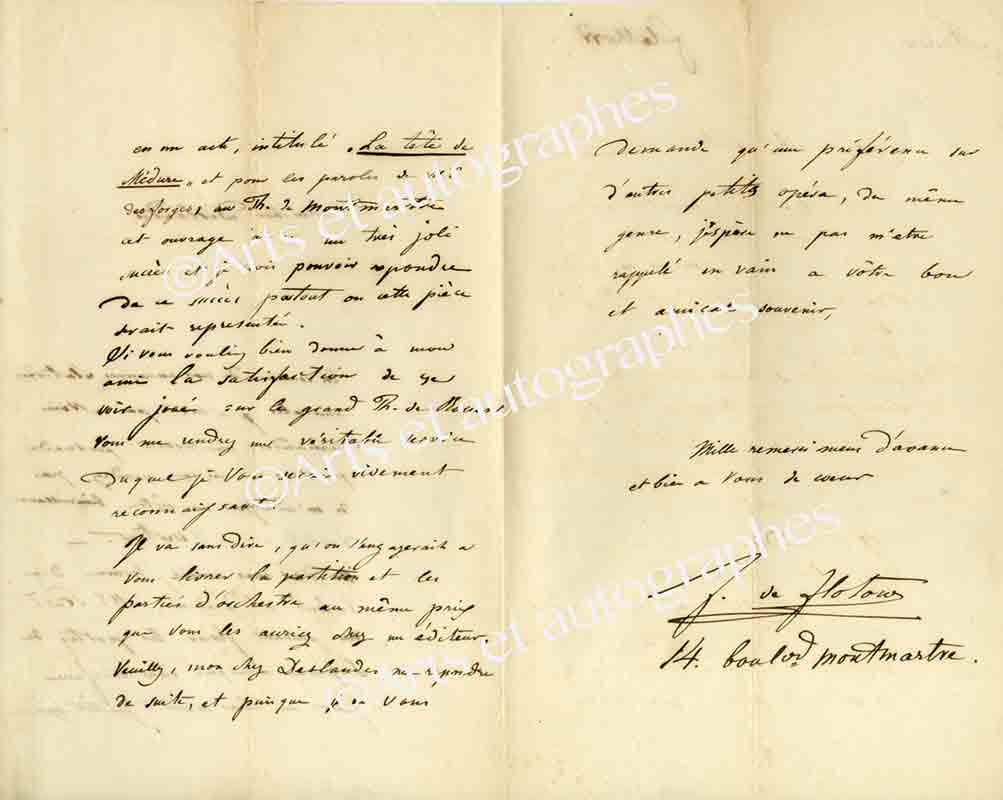 en un acte, intitulé "La tête de
Méduse" et pour les paroles de
desforges, au Th. de Montmartre
cet ouvrage a un très joli
succès et je crois pouvoir repondre
de ce succès partout ou cette pièce
serait representée.
Si vous vouliez bien donner à mon
ami la satisfaction de se
voir joué sur le grand Th. de
vous me rendrez un véritable service
duquel je vous serais vivement
reconnaissant.
Il va sans dire, qu'on s'engagerait a
vous livrer la partition et les
parties d'orchestre au même prix
que vous les auriez chez un éditeur.
Veuillez, mon cher Deslandes me répondre
de suite, et puisque je ne vous
demande qu'une préférence sur
d'autres petits opéra, du même
genre, j'espère ne pas m'etre
rappelé en vain a vôtre bon
et amical souvenir,
Mille remerciemens d'avance
et bien a vous de coeur
f. de flotow
14. boulevd montmartre.
©Arts et autographes
©Arts et autographes
©Arts et autographes